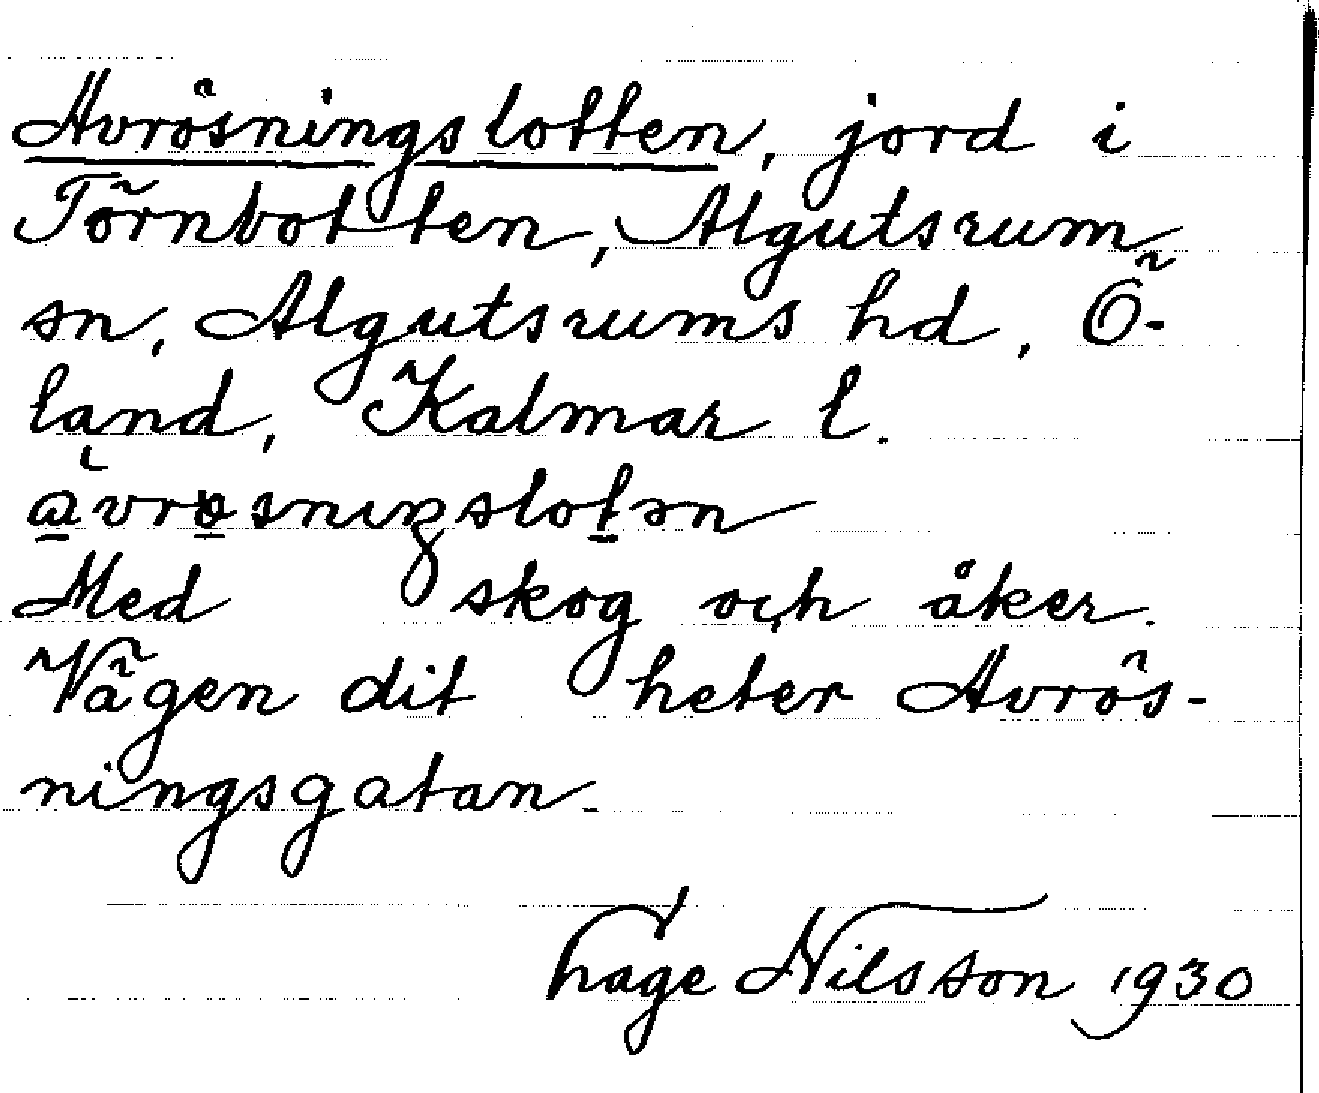 Avrösningslotten, jord i
Törnbotten, Algutsrum
sn, Algutsrums hd, Ö-
land, Kalmar l.
Med skog och åker.
Vägen dit heter Avrös-
ningsgatan.
Hage Nilsson 1930